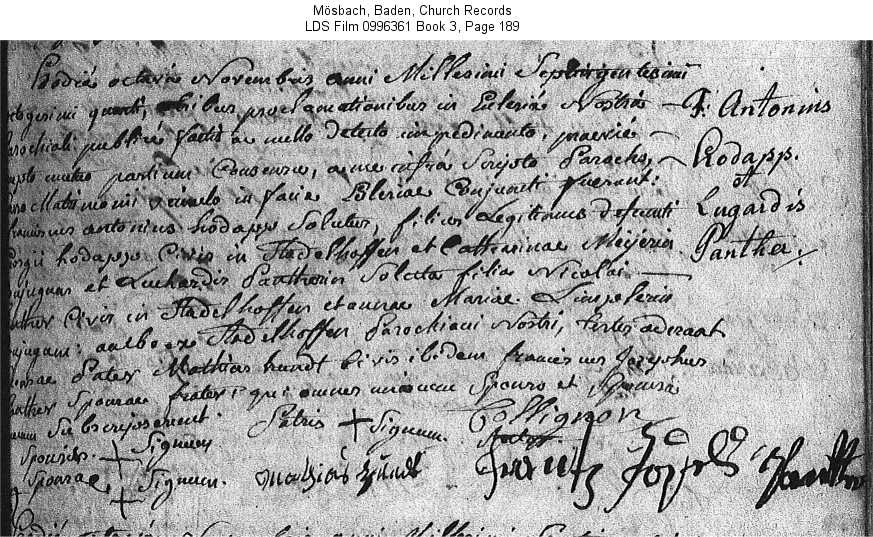 Mösbach, Baden, Church Records
LDS Film 0996361 Book 3, Page 189
Hodie octava Novembris anni Millesimi Septingentesimi
quarti, tribus proclamationibus in Eclesia Nostra
Parochiali publice factis ac nullo detecto impedimento, praevio
mutuo partium Consensu, a me infra Scripto Parocho,
Matrimonii vinculo in facie Eclesiae Conjuncti fuerunt:
franciscus antonius hodapp Solutus, filius Legitimus defuncti
hodapp Civis in Stadelhoffen et Catharinae Meÿerin
et Luchardis Pantherin Soluta filia Nicolai
Civis in Stadelhoffen et annae Mariae
ambo ex Stadelhoffen Parochiani Nostri, testes aderant
Pater Mathias hundt Civis ibidem franciscus Josephus
panther Sponsae frater, qui omnes mecum Sponso et Sponsa
Subscripserunt. Patris + Signum. Collignon
Sponsi + Signum
Sponsae, + Signum. Mathias Hundt Frantz Joseph Panther
F. Antonius
Hodapp.
et
Lugardis
Panther.